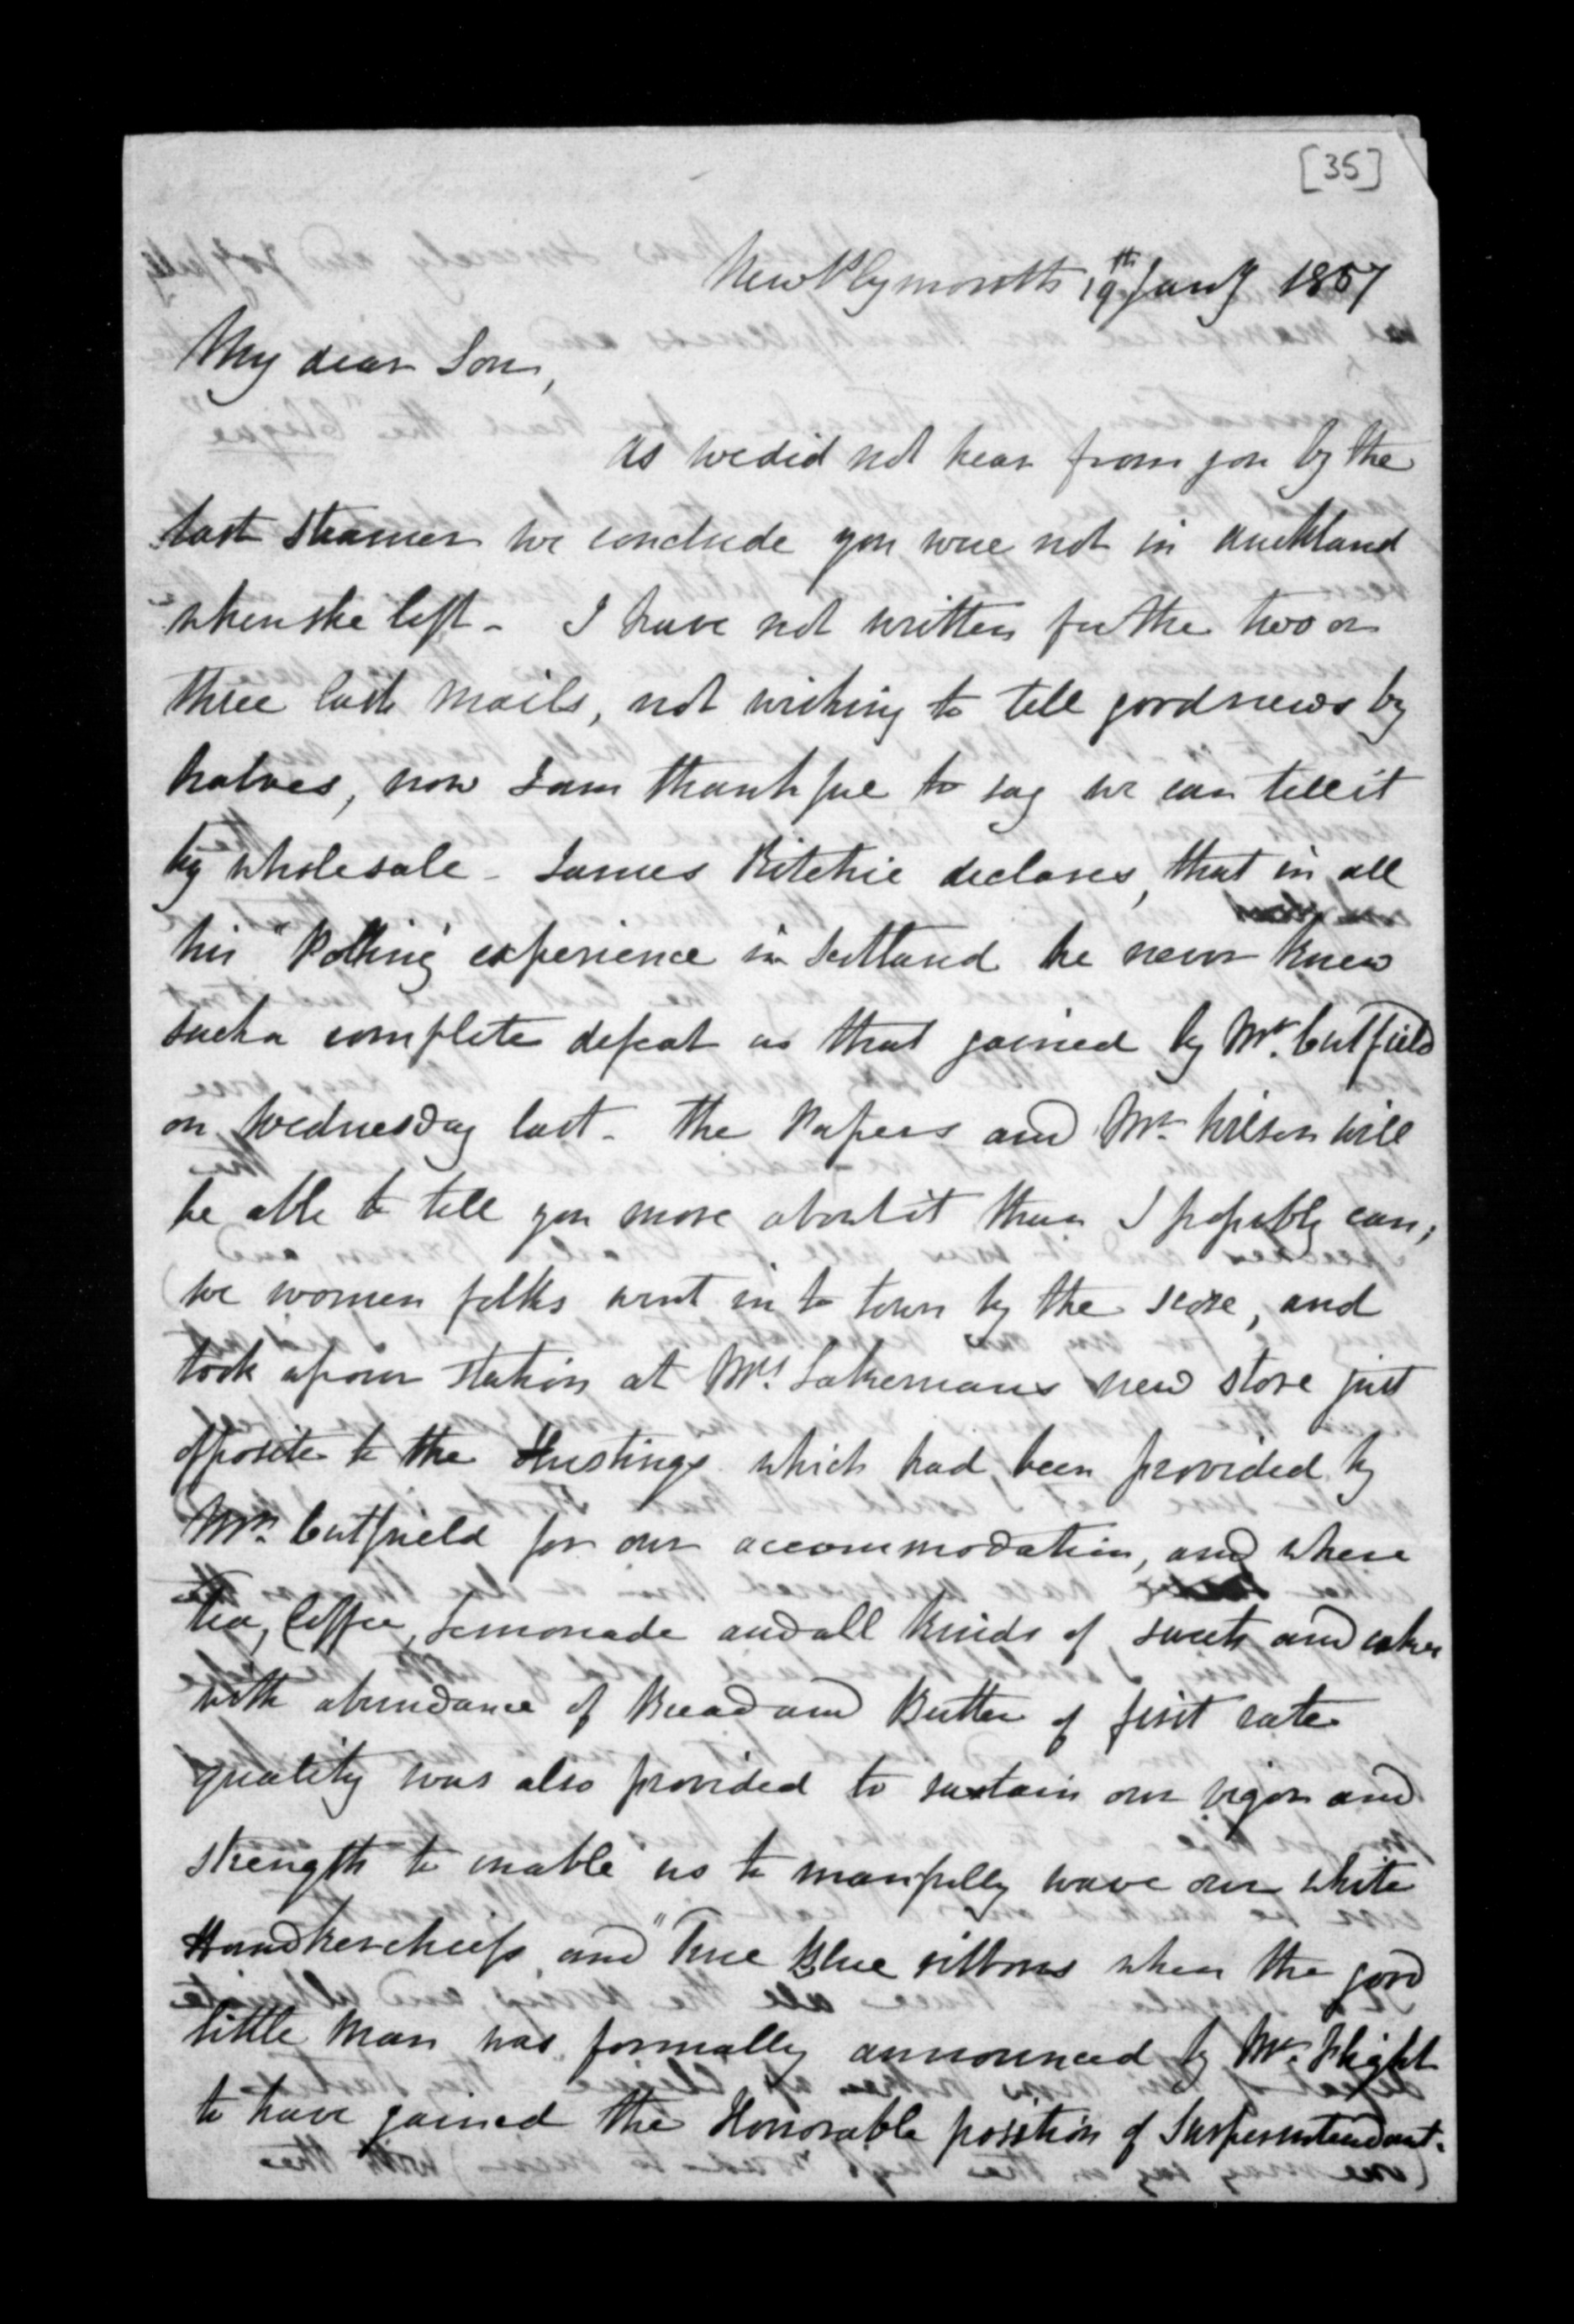 [35]
New Plymouth 19th Jany 1857
My dear Son,
As we did not hear from you by the
last Steamer we conclude you were not in Auckland
when she left - I have not written for the two or
three last Mails, not wishing to tell good news by
halves, now I am thankful to say we can tell it
by wholesale - James Ritchie declares, that in all
his "Polling" experience in Scotland he never knew
such a complete defeat as that gained by Mr. Cutfield
on Wednesday last - The Papers and Mr. Wilson will
be able to tell you more about it than I possibly can,
we women folks went in to town by the score, and
took up our station at Mrs. Lakemans new store just
opposite to the Hustings which had been provided by
Mrs. Cutfield for our accommodation, and where
Tea, Coffee, Lemonade and all kinds of sweets and cakes
with abundance of Bread and Butter of first rate
quality was also provided to sustain our vigor and
strength to enable us to manfully wave our white
Handkerchiefs and "True Blue ribbons when the good
little man was formally announced by Mr. Flight
to have gained the Honorable position of Superintendant.